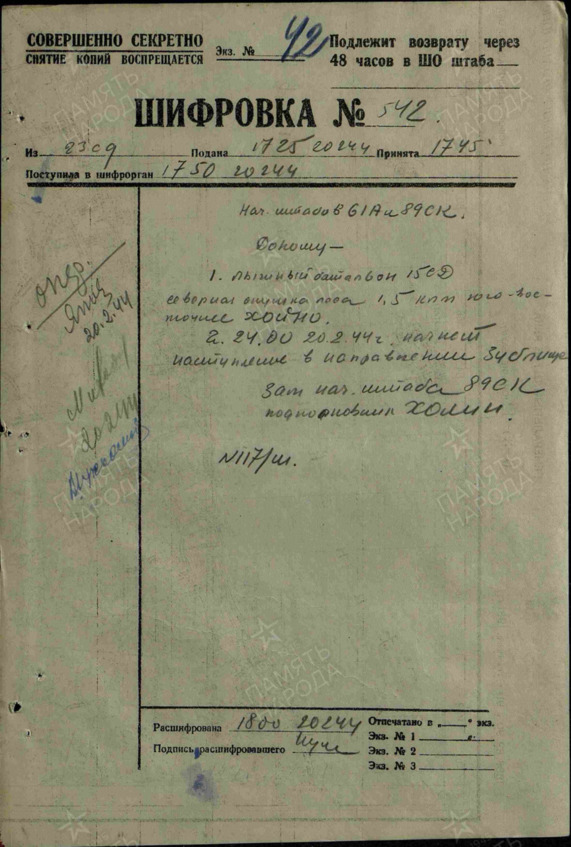 СОВЕРШЕННО СЕКРЕТНО
СНЯТИЕ КОПИЙ ВОСПРЕЩАЕТСЯ
Экз. № 42
Подлежит возврату через
48 часов в ШО штаба
ШИФРОВКА № 542.
Из 23сд Подана 1725 20244 Принята 1745
Поступила в шифрорган 1750 20244
Нач. штабов 61А и 89СК.
Доношу —
1. Лыжный батальон 15СД
северная опушка леса 1,5 клм юго-вос-
точнее ХОЙНО.
2. 24.00 20.2.44г. начнет
наступление в направлении Зублище
Зам нач. штаба 89СК
подполковник ХОЛИН.
№117/ш.
опер.
20.2.44
20244
Расшифрована 1800 20244
Подпись расшифровавшего
Отпечатано в „ “ экз.
Экз. № 1
Экз. № 2
Экз. № 3
ПАМЯТЬ НАРОДА